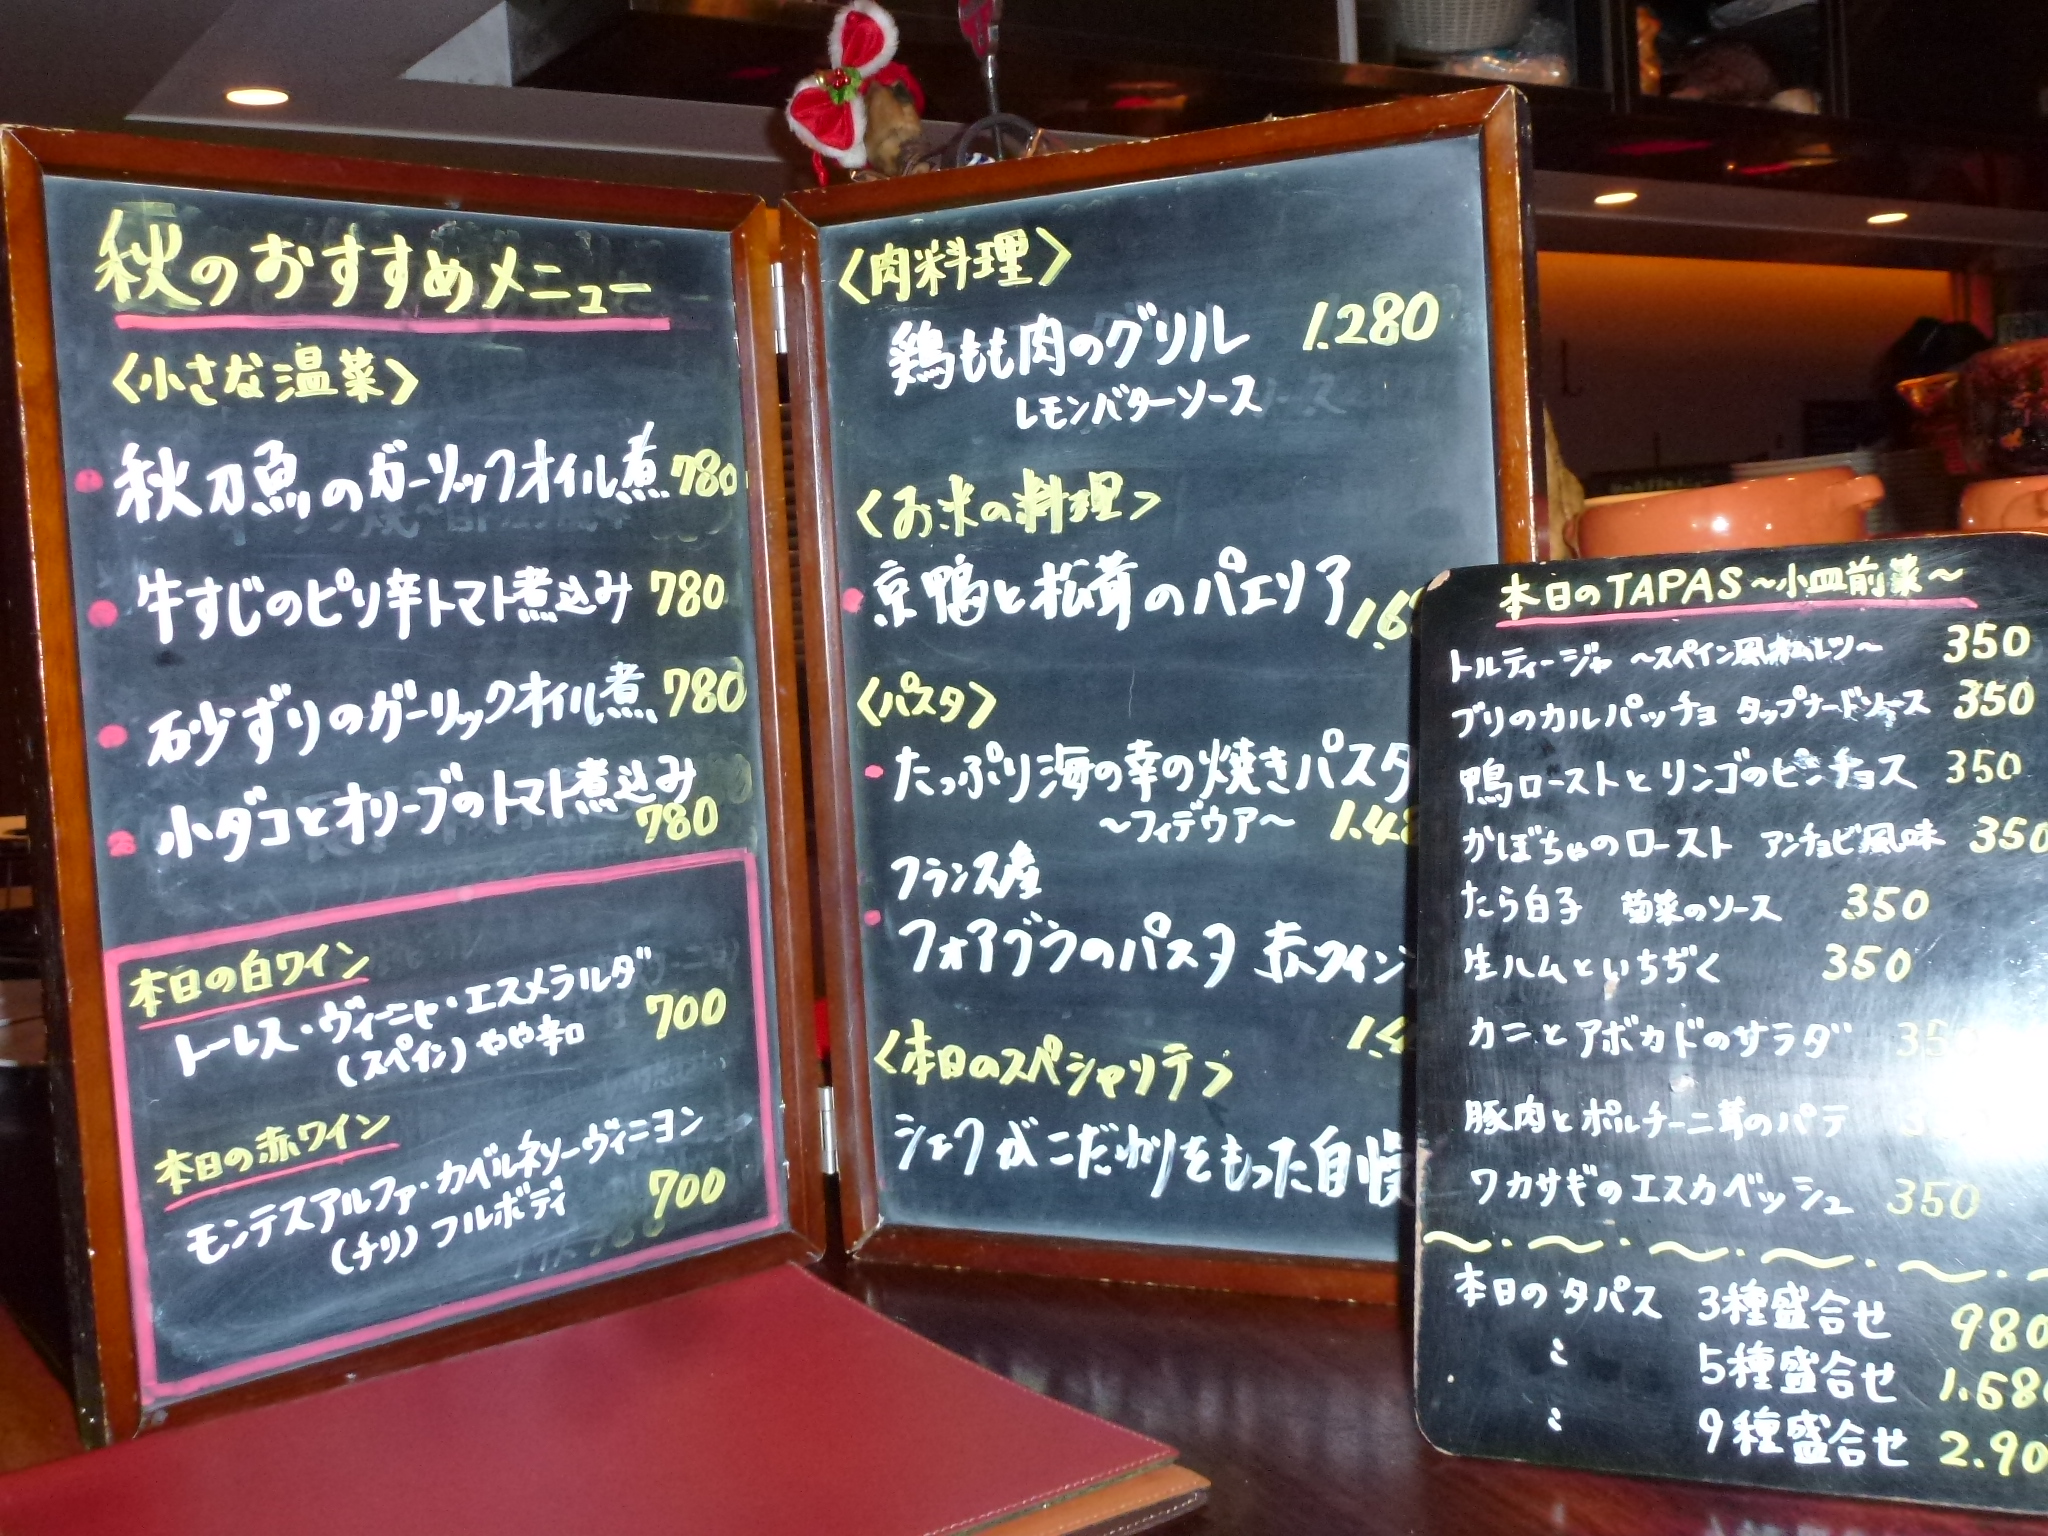 秋のおすすめメニュー
〈小さな温菜〉
秋刀魚のガーリックオイル煮 780
牛すじのピリ辛トマト煮込み 780
砂ずりのガーリックオイル煮 780
小ダコとオリーブのトマト煮込み
780
本日の白ワイン
トーレス・ヴィーニャ・エスメラルダ
(スペイン) やや辛口 700
本日の赤ワイン
モンテスアルファ・カベルネソーヴィニヨン
(チリ) フルボディ 700
〈肉料理〉
鶏もも肉のグリル 1.280
レモンバターソース
〈お米の料理〉
京鴨と松茸のパエリア
〈パスタ〉
たっぷり海の幸の焼きパスタ
〜フィデウア〜
フランス産
フォアグラのパスタ 赤ワイン
〈本日のスペシャリテ〉
シェフがこだわりをもった自慢
本日のTAPAS〜小皿前菜〜
トルティージャ 〜スペイン風オムレツ〜 350
ブリのカルパッチョ タップナードソース 350
鴨ローストとリンゴのピンチョス 350
かぼちゃのロースト アンチョビ風味 350
たら白子 菊菜のソース 350
生ハムといちぢく 350
カニとアボカドのサラダ 350
豚肉とポルチーニ茸のパテ
ワカサギのエスカベッシュ 350
〜・〜・〜・〜・〜・〜
本日のタパス 3種盛合せ 980
〃 5種盛合せ 1.580
〃 9種盛合せ 2.90